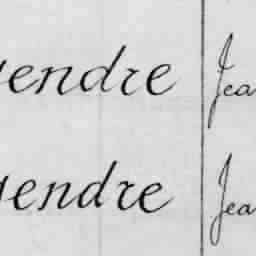 gendre Jea
gendre Jea